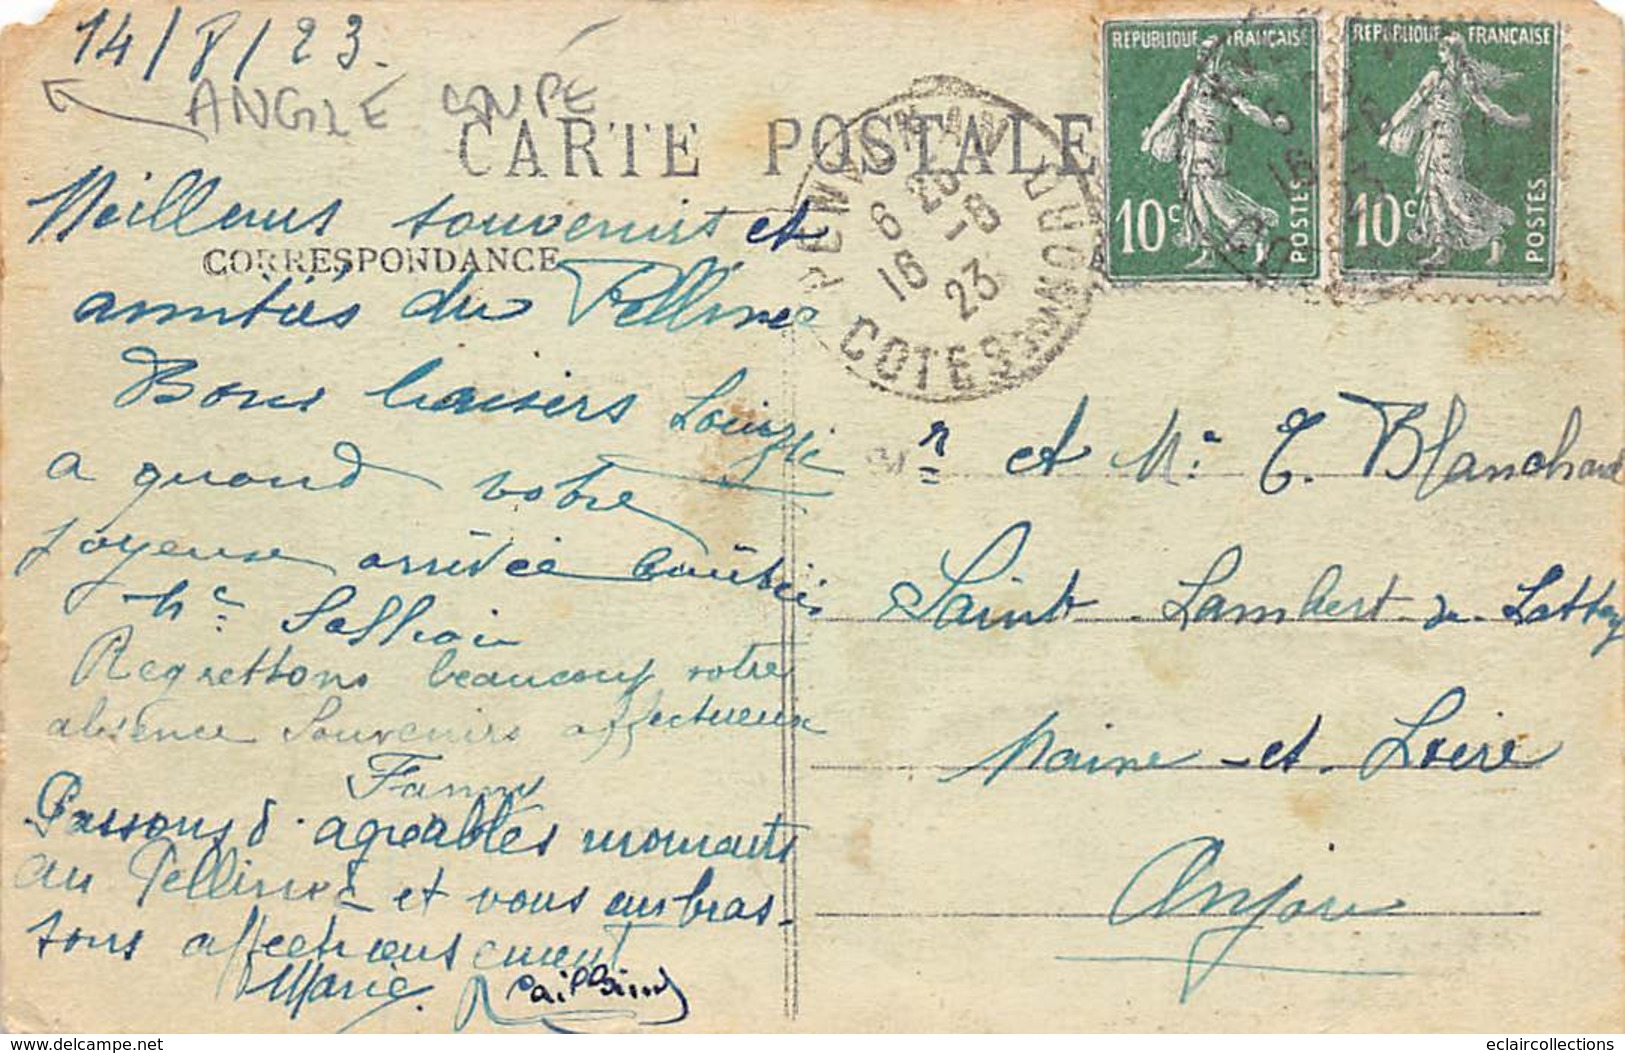 14/8/23.
ANGLE COUPÉ
CARTE POSTALE
CORRESPONDANCE
Meilleurs souvenirs et
amitiés du Pellinec
Bons baisers Louizic
a quand votre
joyeuse arrivée
Regrettons beaucoup votre
absence Souvenirs affectueux
Fanny
Passons d'agréables moments
au Pellinec et vous embras-
sons affectueusement
Marie.
REPUBLIQUE FRANÇAISE
10c
POSTES
REPUBLIQUE FRANÇAISE
10c
POSTES
PENVENAN
6 25
16 -8
23
COTES DU NORD
Mr et Me E. Blanchard
Saint Lambert du Lattay
Maine-et-Loire
Anjou
delcampe.net
eclaircollections